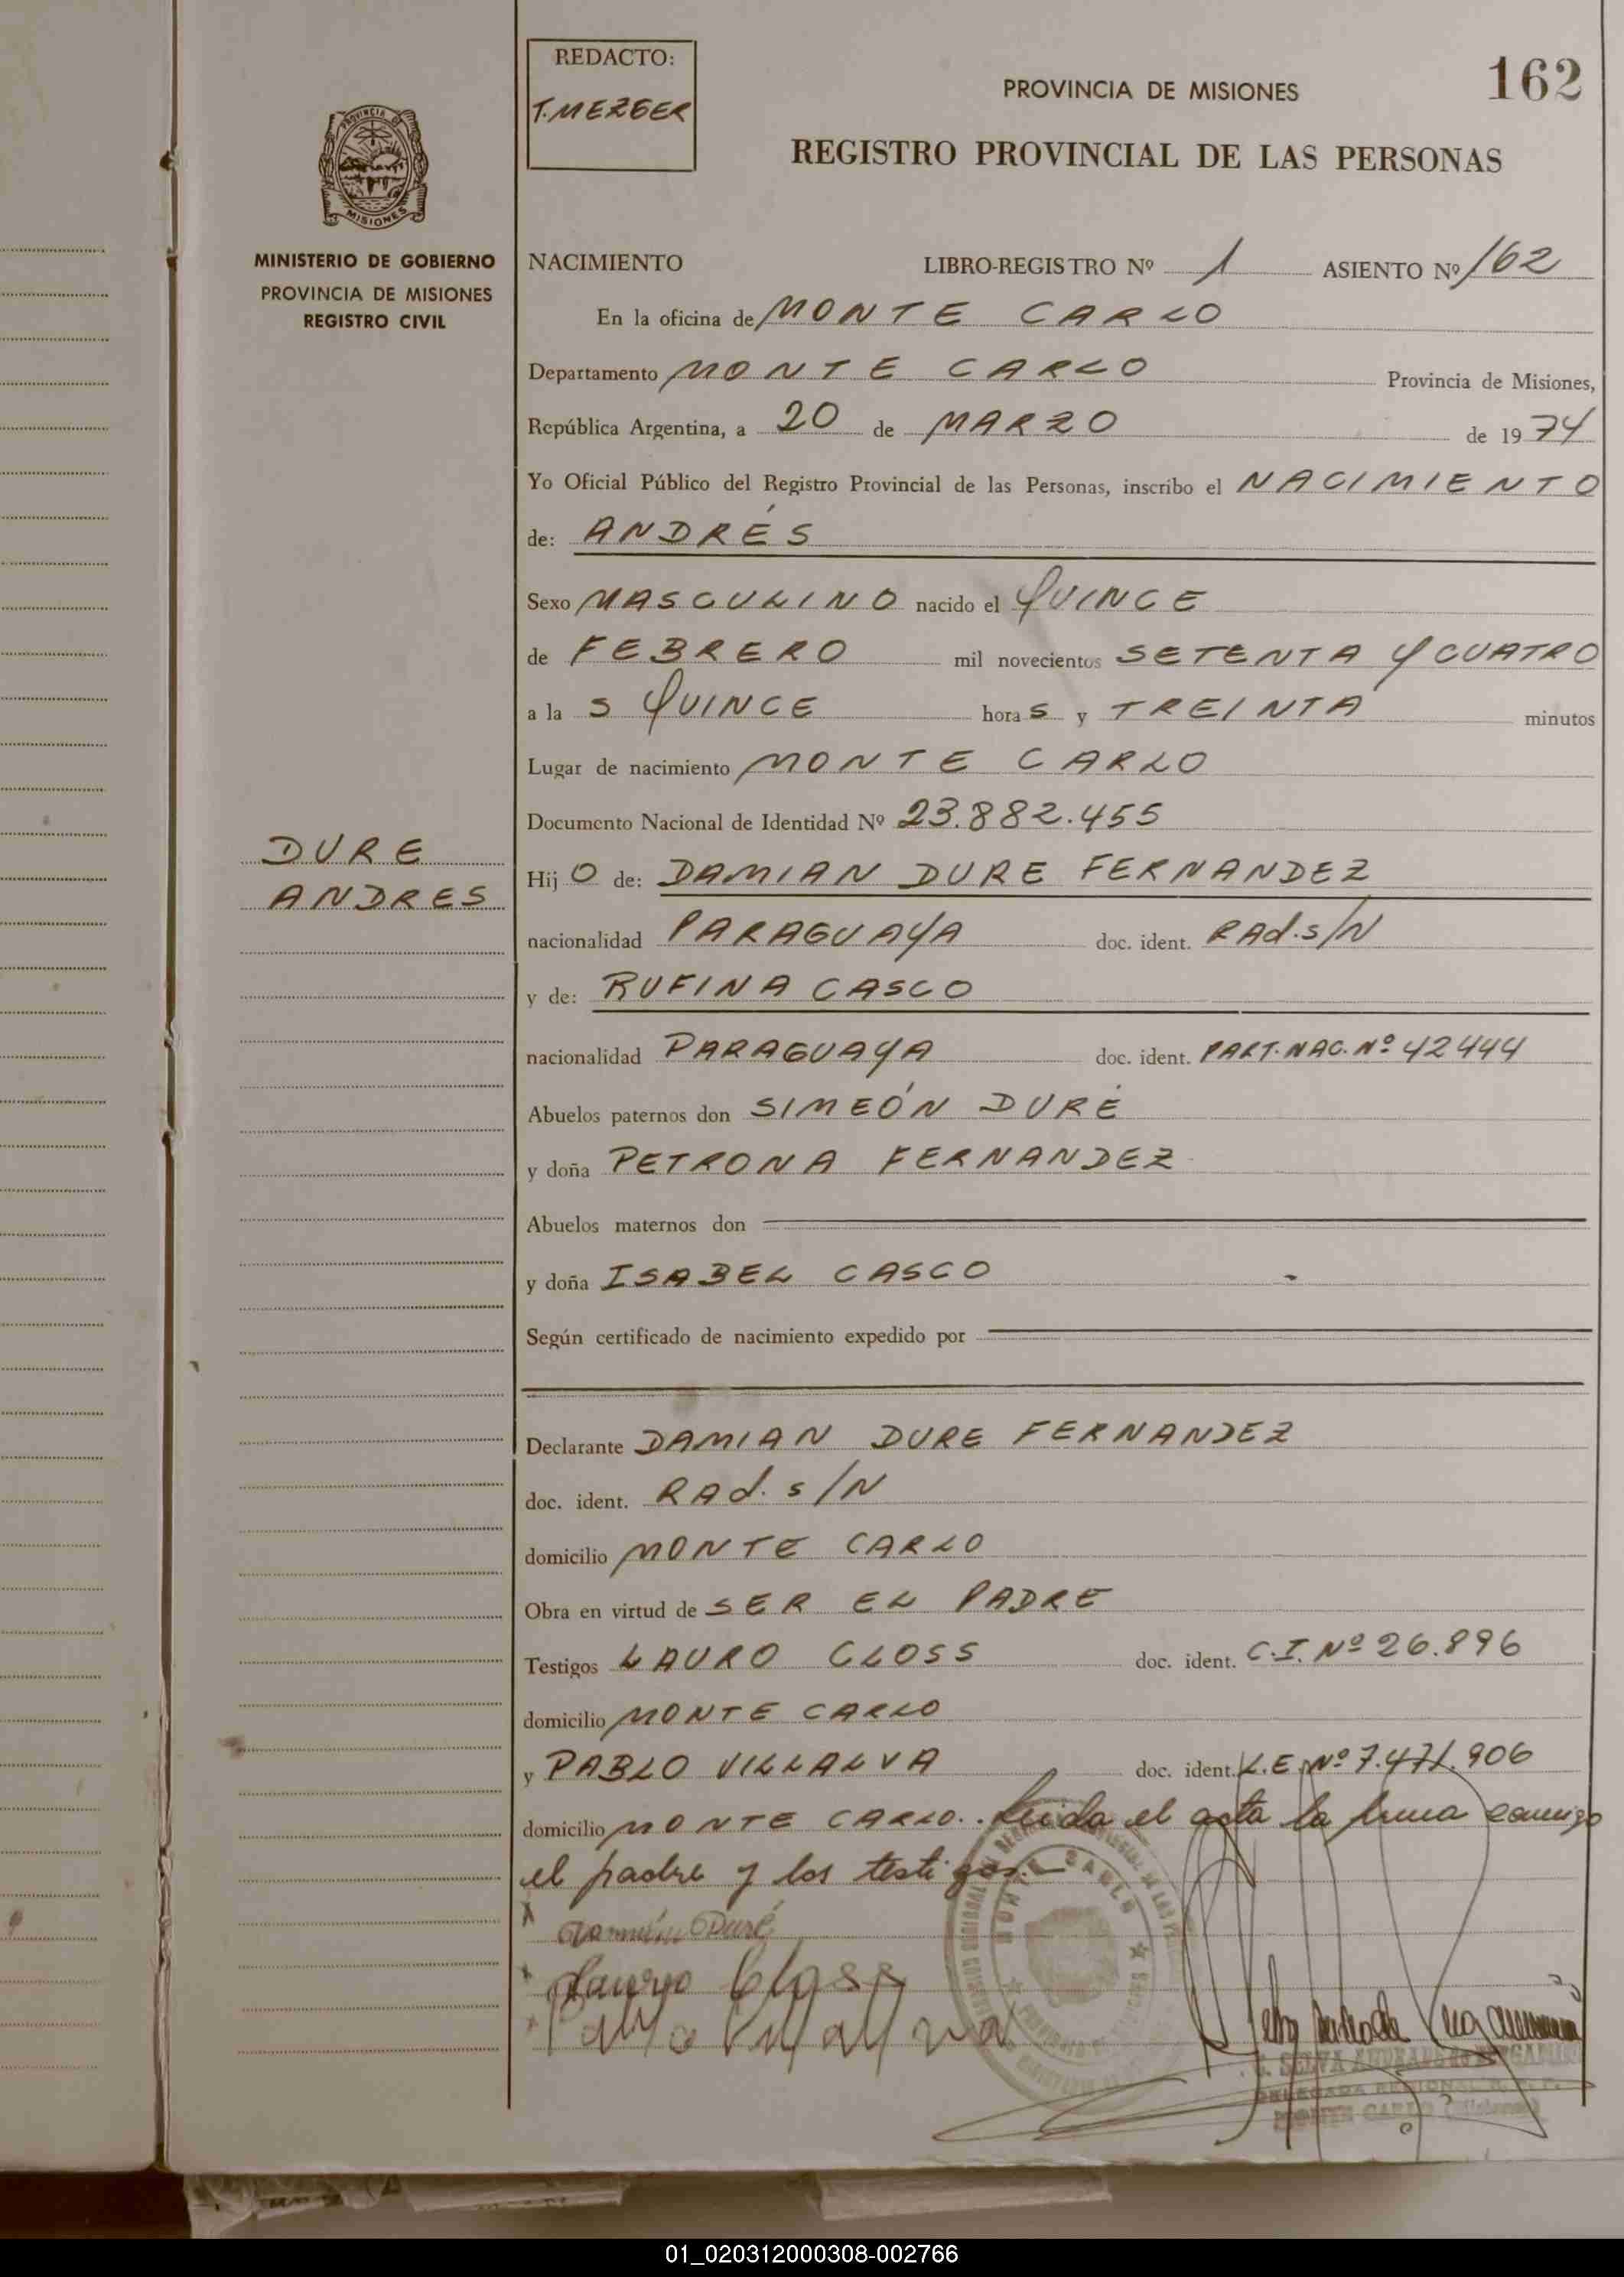 REDACTO:
T. MEZGER
PROVINCIA DE MISIONES
162
REGISTRO PROVINCIAL DE LAS PERSONAS
PROVINCIA DE
MISIONES
MINISTERIO DE GOBIERNO
PROVINCIA DE MISIONES
REGISTRO CIVIL
NACIMIENTO LIBRO-REGISTRO Nº 1 ASIENTO Nº 162
En la oficina de MONTE CARLO
Departamento MONTE CARLO Provincia de Misiones,
República Argentina, a 20 de MARZO de 1974
Yo Oficial Público del Registro Provincial de las Personas, inscribo el NACIMIENTO
de: ANDRÉS
Sexo MASCULINO nacido el QUINCE
de FEBRERO mil novecientos SETENTA Y CUATRO
a la S QUINCE hora S y TREINTA minutos
Lugar de nacimiento MONTE CARLO
Documento Nacional de Identidad Nº 23.882.455
DURE
ANDRES
Hij O de: DAMIAN DURE FERNANDEZ
nacionalidad PARAGUAYA doc. ident. RAd. s/N
y de: RUFINA CASCO
nacionalidad PARAGUAYA doc. ident. PART. NAC. Nº 42444
Abuelos paternos don SIMEÓN DURÉ
y doña PETRONA FERNANDEZ
Abuelos maternos don
y doña ISABEL CASCO
Según certificado de nacimiento expedido por
Declarante DAMIAN DURE FERNANDEZ
doc. ident. RAd. s/N
domicilio MONTE CARLO
Obra en virtud de SER EL PADRE
Testigos LAURO CLOSS doc. ident. C.I. Nº 26.896
domicilio MONTE CARLO
y PABLO VILLALVA doc. ident. L.E. Nº 7.471.906
domicilio MONTE CARLO. Leida el acta la firma conmigo
el padre y los testigos.—
Damián Duré
Lauro Closs
Pablo Villalva
MONTE CARLO
01_020312000308-002766